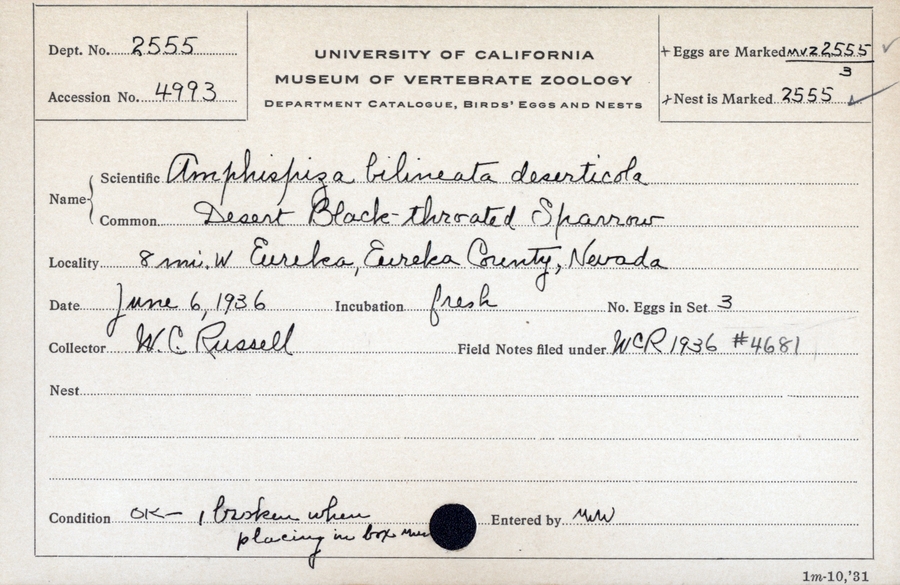 Dept. No. 2555
Accession No. 4993
UNIVERSITY OF CALIFORNIA
MUSEUM OF VERTEBRATE ZOOLOGY
DEPARTMENT CATALOGUE, BIRDS' EGGS AND NESTS
+ Eggs are Marked MVZ 2555
3
+ Nest is Marked 2555
Name
Scientific Amphispiza bilineata deserticola
Common Desert Black-throated Sparrow
Locality 8 mi. W Eureka, Eureka County, Nevada
Date June 6, 1936 Incubation fresh No. Eggs in Set 3
Collector W. C. Russell Field Notes filed under WCR 1936 #4681
Nest
Condition OK— 1 broken when
placing in box
Entered by MW
1m-10,'31